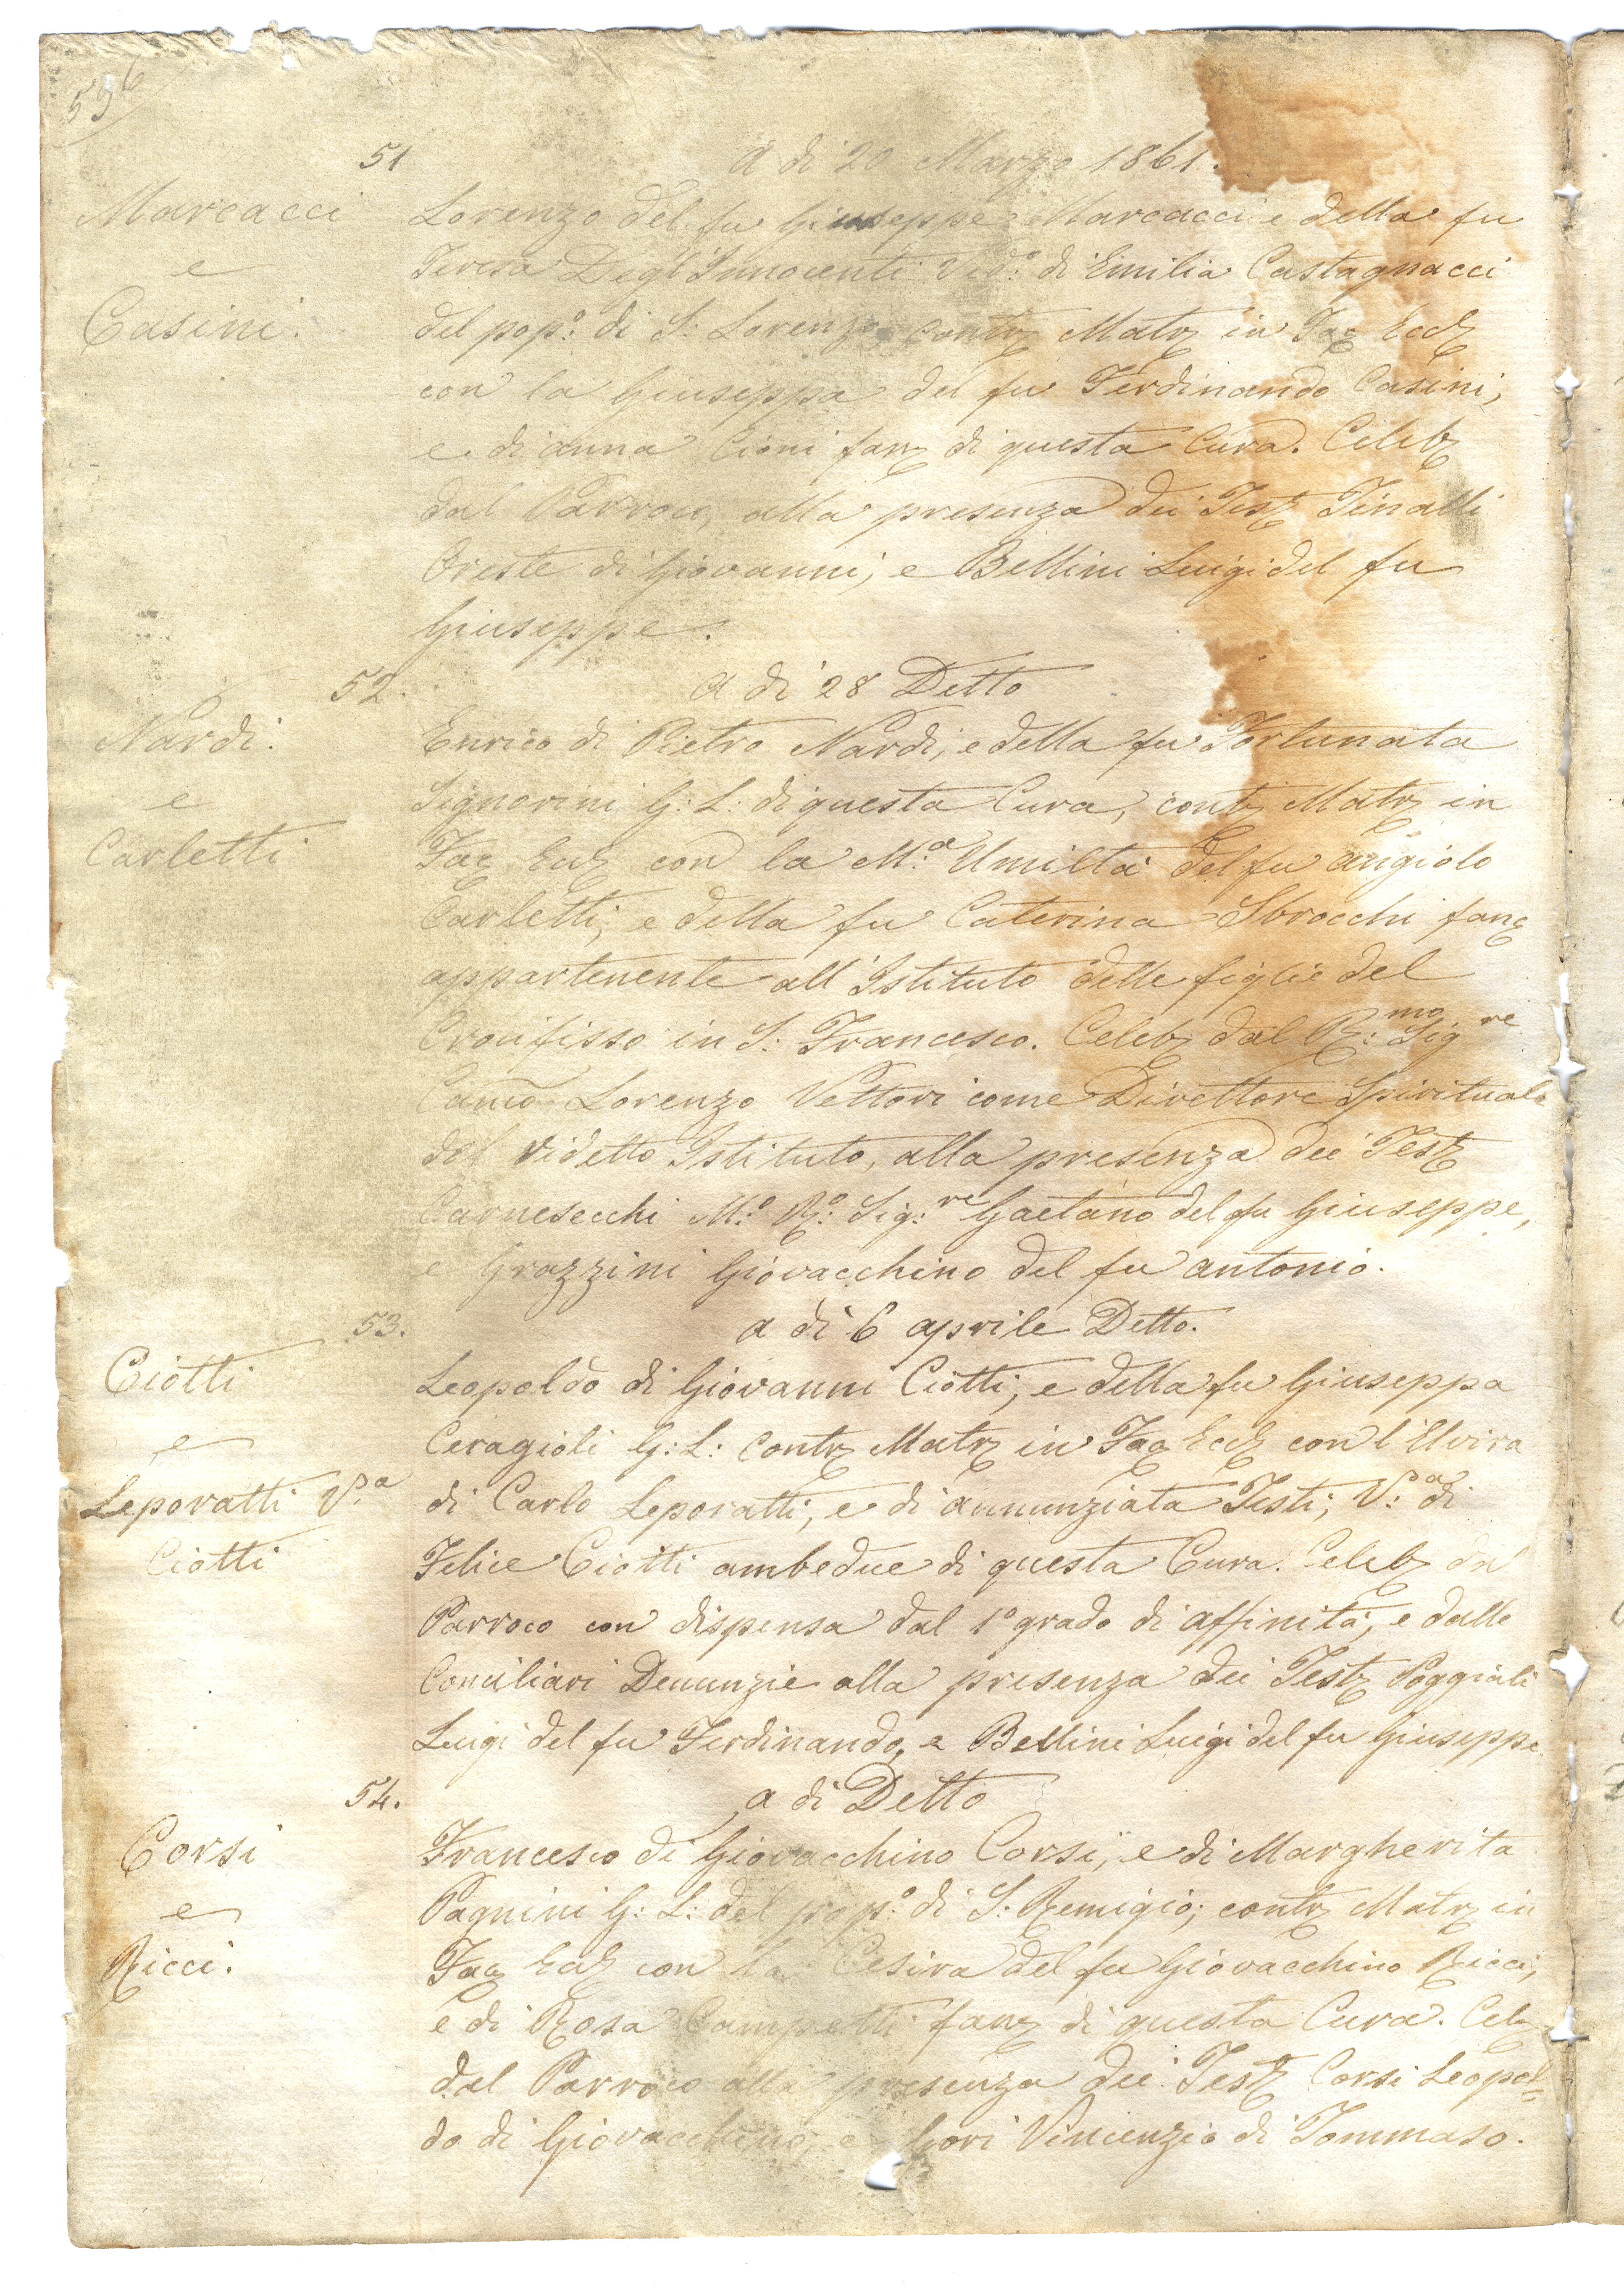 596
51 A dì 20 Marzo 1861.
Marcacci
e
Casini.
Lorenzo del fu Giuseppe Marcacci e della fu
Teresa Degl'Innocenti Ved.º di Emilia Castagnacci
del pop.º di S. Lorenzo contr Matr in Fac Eccl
con la Giuseppa del fu Ferdinando Casini,
e di anna Cioni fanc di questa Cura. Celebr
dal Parroco, alla presenza dei Test Tinalli
Oreste di Giovanni, e Bellini Luigi del fu
Giuseppe.
52. A dì 28 Detto
Nardi.
e
Carletti
Enrico di Pietro Nardi, e della fu Fortunata
Signorini G: L: di questa Cura, contr Matr in
Fac Eccl con la M.ª Umiltà del fu angiolo
Carletti, e della fu Caterina Sbrocchi fanc
appartenente all'Istituto delle figlie del
Crocifisso in S: Francesco. Celebr dal R:mo Sigre
Cano Lorenzo Vettori come Direttore Spirituale
del videtto Istituto, alla presenza dei Test
Carnesecchi M.º R.º Sig:re Gaetano del fu Giuseppe,
e Grazzini Giovacchino del fu antonio.
53. a dì 6 aprile Detto.
Ciotti
e
Leporatti V.ª
Ciotti
Leopoldo di Giovanni Ciotti, e della fu Giuseppa
Ceragioli G: L: contr Matr in Fac Eccl con l'Elvira
di Carlo Leporatti, e di annunziata Testi, V:ª di
Felice Ciotti ambedue di questa Cura. Celebr dal
Parroco con dispensa dal 1º grado di affinità, e dalle
Conciliari Denunzie alla presenza dei Test Poggiali
Luigi del fu Ferdinando, e Bellini Luigi del fu Giuseppe.
54. a dì Detto
Corsi
e
Ricci.
Francesco di Giovacchino Corsi, e di Margherita
Pagnini G: L: del pop.º di S: Remigio; contr Matr in
Fac Eccl con la Cesira del fu Giovacchino Ricci,
e di Rosa Campetti fanc di questa Cura. Cel
dal Parroco alla presenza dei Test Corsi Leopol=
do di Giovacchino, e Gori Vincenzio di Tommaso.